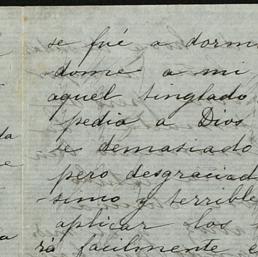 se fué a dormi
dome a mi
aquel tinglado
pedia a Dios
se demasiado
pero desgraciad
simo y terrible
aplicar los
rá facilmente e